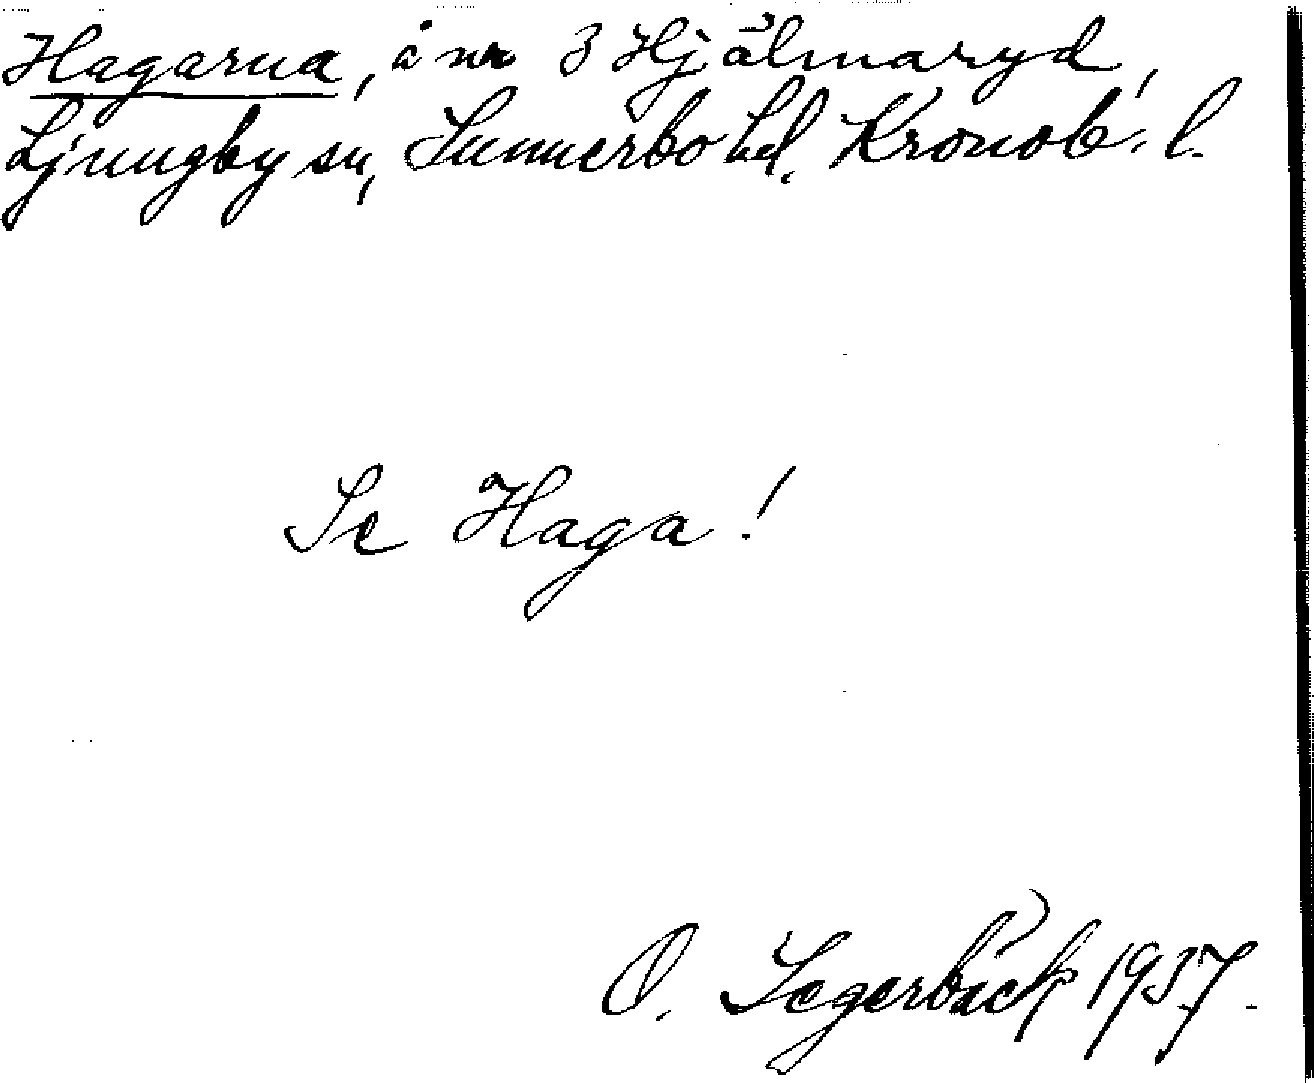 Hagarna, å nr 3 Hjälmaryd,
Ljungby sn, Sunnerbo hd. Kronob. l.
Se Haga!
O. Segerbäck 1937.